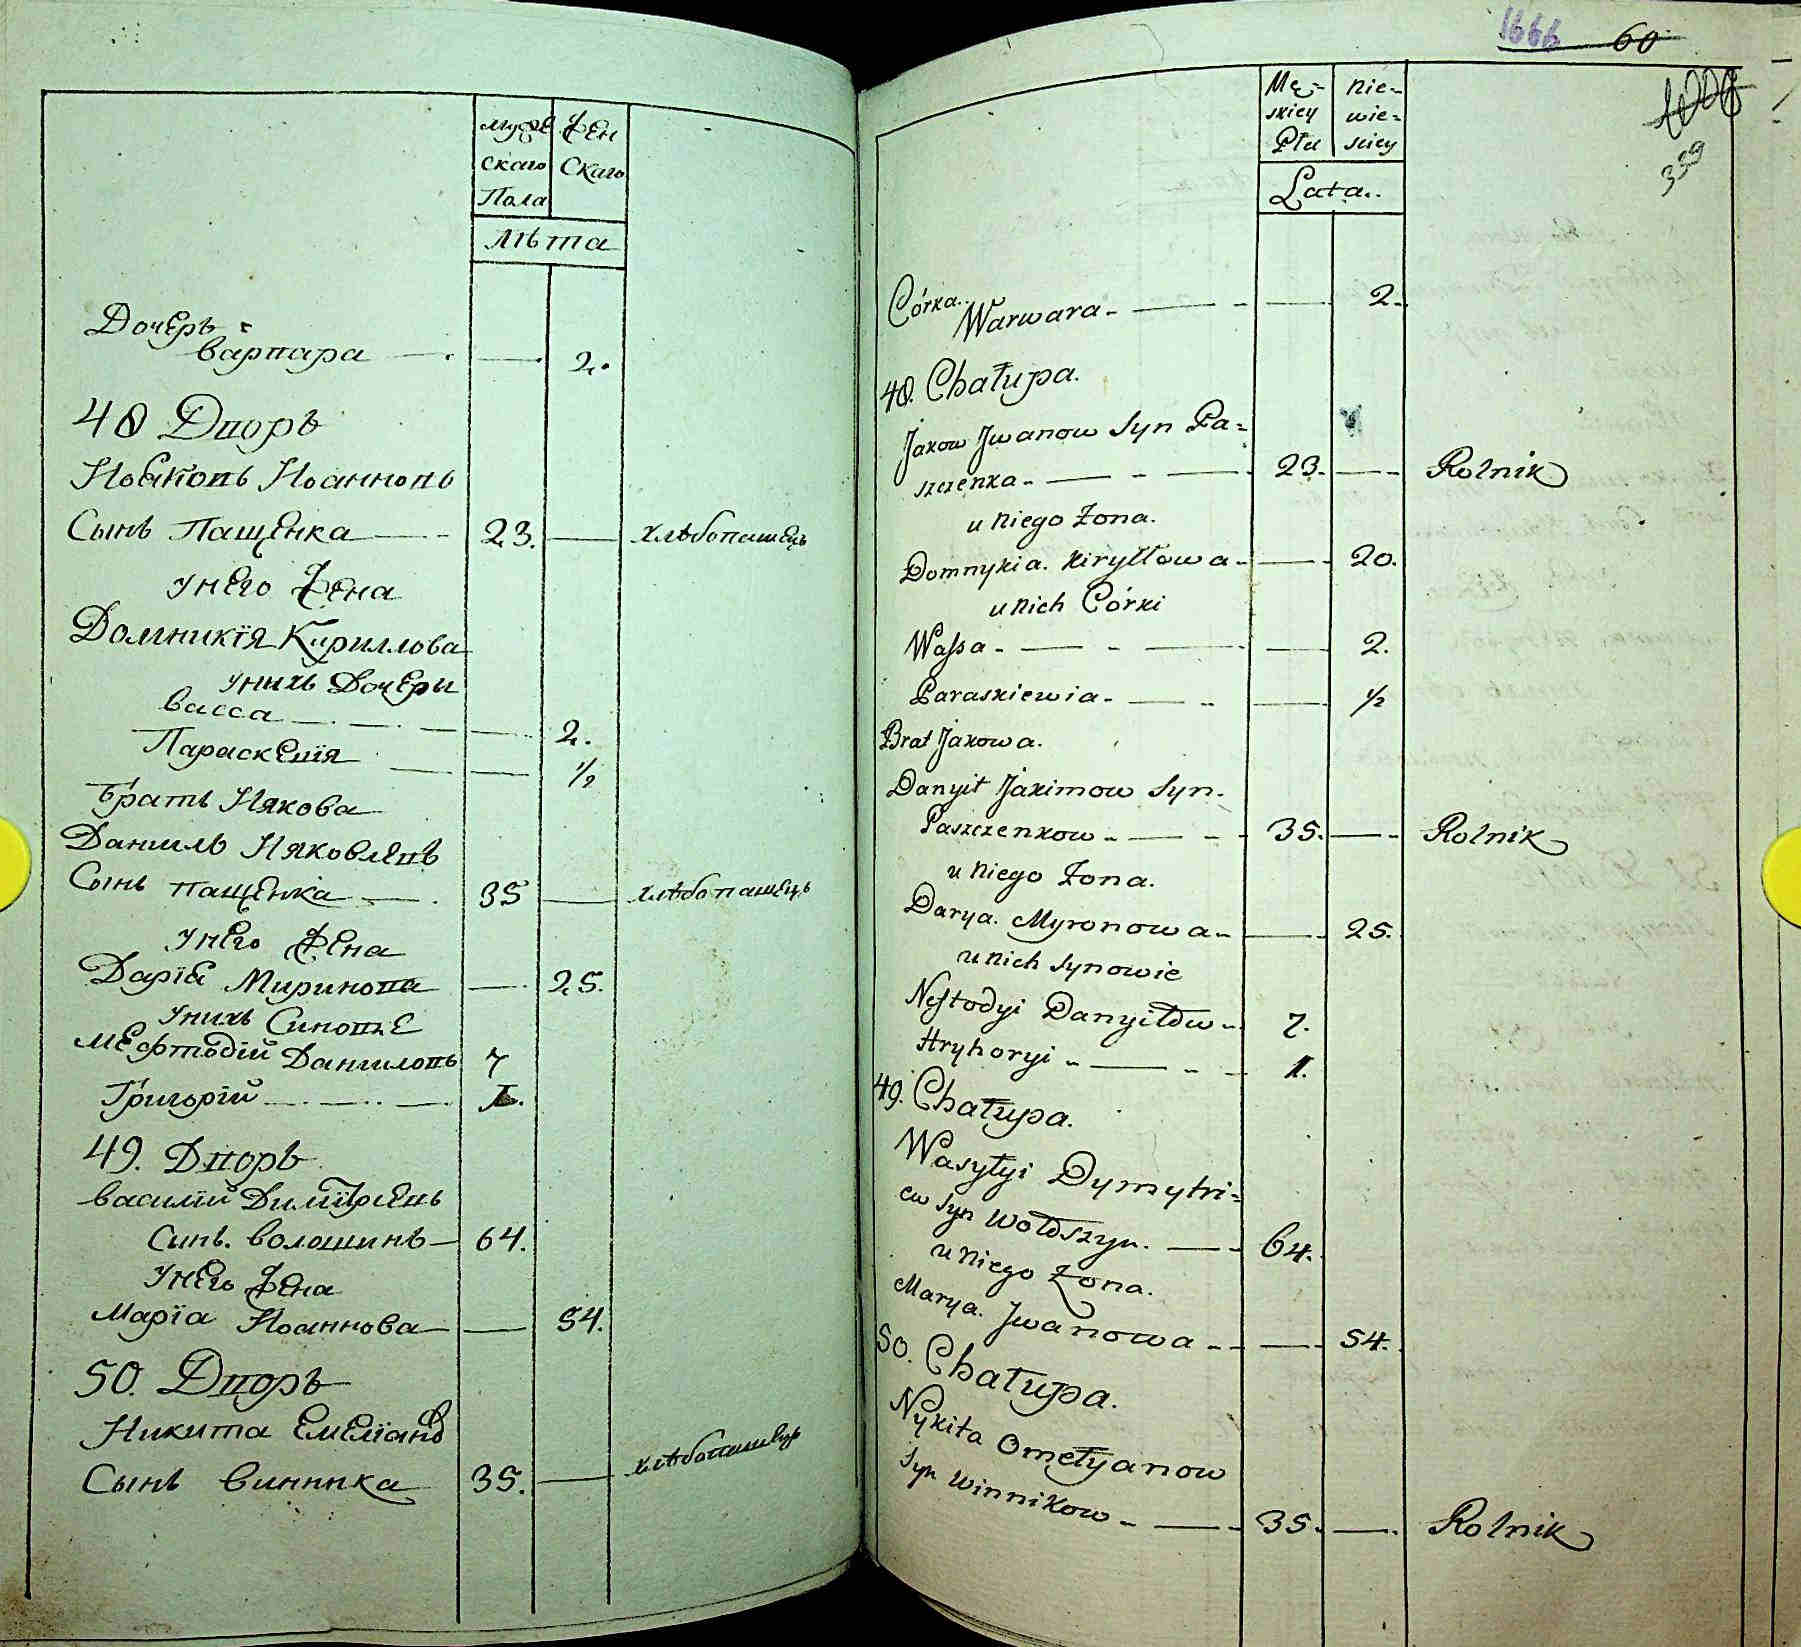 Муже Жен
скаго скаго
Пола
лѣта
Дочерь
варпара — 2.
48 Дпоръ
Иоакопъ Иоаннопъ
Сынъ Пащенка — 23. — хлѣбопашецъ
унего Жена
Домникїя Кириллова
унихъ Дочеры
васса — 2.
Параскепїя — 1/2
Братъ Иякова
Даниилъ Ияковлепъ
Сынъ пащенка — 35 — хлѣбопашецъ
унего Жена
Дарїа Миринопа — 25.
унихъ Синопѣе
Мефтодїй Данилопъ 7
Григорїй — 1.
49. Дпоръ
василїй Димїтрїепъ
Сынъ. волошинъ — 64.
унего Жена
Марїа Иоаннова — 54.
50. Дпоръ
Никита Емелїано
Сынъ виннпка 35. — хлѣбопашецъ
1666 60
339
Mę- nie-
skiey wie-
Płci skiey
Lata..
Córka..
Warwara. — 2.
48. Chałupa.
Jakow Jwanow Syn Pa-
szczenka — 23. — Rolnik
u niego Żona.
Domnykia. Kiryłłowa — 20.
u nich Córki
Wassa — 2.
Paraskiewia — 1/2
Brat Jakowa.
Danyił Jakimow Syn.
Paszczenkow — 35. — Rolnik
u niego Żona.
Darya. Myronowa — 25.
u nich synowie
Neftodyi Danyiłow 7.
Hryhoryi — 1.
49. Chałupa.
Wasyłyi Dymytri-
ew syn Wołoszyn. — 64.
u niego Żona.
Marya. Jwanowa — 54.
50. Chałupa.
Nykita Omełyanow
syn Winnikow — 35. — Rolnik